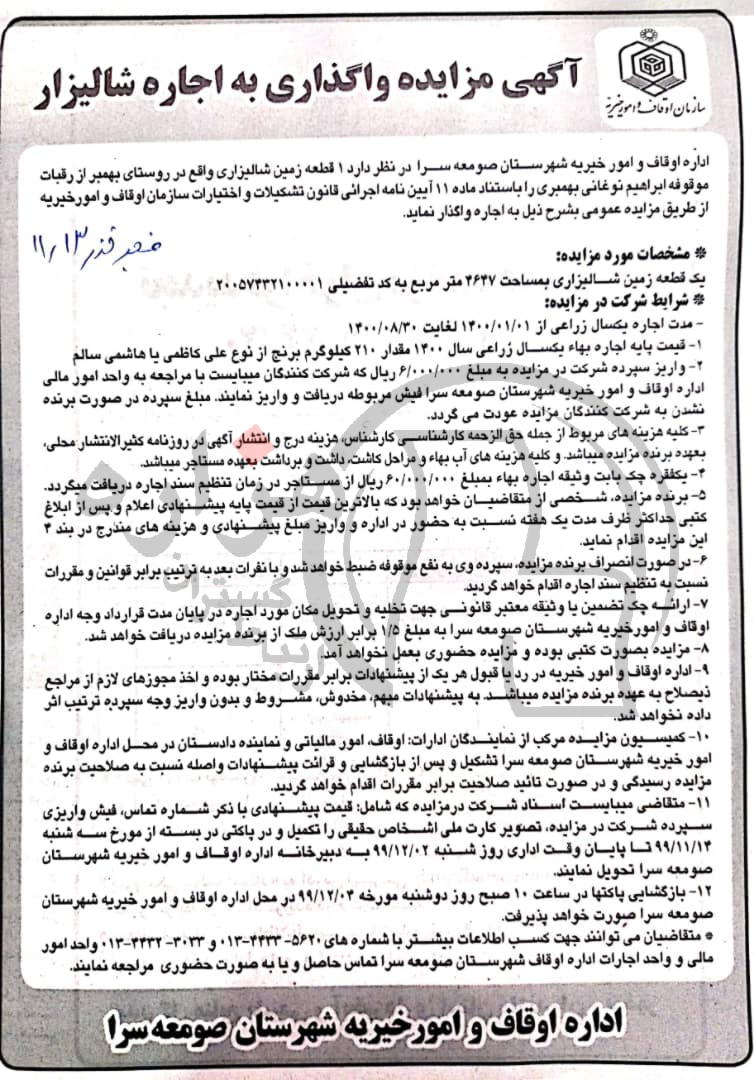 سازمان اوقاف و امور خیریه
آگهی مزایده واگذاری به اجاره شالیزار
اداره اوقاف و امور خیریه شهرستان صومعه سرا در نظر دارد ۱ قطعه زمین شالیزاری واقع در روستای بهمبر از رقبات
موقوفه ابراهیم نوغانی بهمبری را باستناد ماده ۱۱ آیین نامه اجرائی قانون تشکیلات و اختیارات سازمان اوقاف و امورخیریه
از طریق مزایده عمومی بشرح ذیل به اجاره واگذار نماید.
۱۱٫۱۳
* مشخصات مورد مزایده:
یک قطعه زمین شالیزاری بمساحت ۴۶۴۷ متر مربع به کد تفضیلی ۲۰۰۵۷۴۳۲۱۰۰۰۰۱
* شرایط شرکت در مزایده:
- مدت اجاره یکسال زراعی از ۱۴۰۰/۰۱/۰۱ لغایت ۱۴۰۰/۰۸/۳۰
۱- قیمت پایه اجاره بهاء یکسال زراعی سال ۱۴۰۰ مقدار ۲۱۰ کیلوگرم برنج از نوع علی کاظمی یا هاشمی سالم
۲- واریز سپرده شرکت در مزایده به مبلغ ۶/۰۰۰/۰۰۰ ریال که شرکت کنندگان میبایست با مراجعه به واحد امور مالی
اداره اوقاف و امور خیریه شهرستان صومعه سرا فیش مربوطه دریافت و واریز نمایند. مبلغ سپرده در صورت برنده
نشدن به شرکت کنندگان مزایده عودت می گردد.
۳- کلیه هزینه های مربوط از جمله حق الزحمه کارشناسی کارشناس، هزینه درج و انتشار آگهی در روزنامه کثیرالانتشار محلی،
بعهده برنده مزایده میباشد. و کلیه هزینه های آب بهاء و مراحل کاشت، داشت و برداشت بعهده مستاجر میباشد.
۴- یکفقره چک بابت وثیقه اجاره بهاء بمبلغ ۶۰/۰۰۰/۰۰۰ ریال از مستاجر در زمان تنظیم سند اجاره دریافت میگردد.
۵- برنده مزایده، شخصی از متقاضیان خواهد بود که بالاترین قیمت از قیمت پایه پیشنهادی اعلام و پس از ابلاغ
کتبی حداکثر ظرف مدت یک هفته نسبت به حضور در اداره و واریز مبلغ پیشنهادی و هزینه های مندرج در بند ۴
این مزایده اقدام نماید.
۶- در صورت انصراف برنده مزایده، سپرده وی به نفع موقوفه ضبط خواهد شد و با نفرات بعد به ترتیب برابر قوانین و مقررات
نسبت به تنظیم سند اجاره اقدام خواهد گردید.
۷- ارائه چک تضمین یا وثیقه معتبر قانونی جهت تخلیه و تحویل مکان مورد اجاره در پایان مدت قرارداد وجه اداره
اوقاف و امورخیریه شهرستان صومعه سرا به مبلغ ۱/۵ برابر ارزش ملک از برنده مزایده دریافت خواهد شد.
۸- مزایده بصورت کتبی بوده و مزایده حضوری بعمل نخواهد آمد.
۹- اداره اوقاف و امور خیریه در رد یا قبول هر یک از پیشنهادات برابر مقررات مختار بوده و اخذ مجوزهای لازم از مراجع
ذیصلاح به عهده برنده مزایده میباشد. به پیشنهادات مبهم، مخدوش، مشروط و بدون واریز وجه سپرده ترتیب اثر
داده نخواهد شد.
۱۰- کمیسیون مزایده مرکب از نمایندگان ادارات: اوقاف، امور مالیاتی و نماینده دادستان در محل اداره اوقاف و
امور خیریه شهرستان صومعه سرا تشکیل و پس از بازگشایی و قرائت پیشنهادات واصله نسبت به صلاحیت برنده
مزایده رسیدگی و در صورت تائید صلاحیت برابر مقررات اقدام خواهد گردید.
۱۱- متقاضی میبایست اسناد شرکت درمزایده که شامل: قیمت پیشنهادی با ذکر شماره تماس، فیش واریزی
سپرده شرکت در مزایده، تصویر کارت ملی اشخاص حقیقی را تکمیل و در پاکتی در بسته از مورخ سه شنبه
۹۹/۱۱/۱۴ تا پایان وقت اداری روز شنبه ۹۹/۱۲/۰۲ به دبیرخانه اداره اوقاف و امور خیریه شهرستان
صومعه سرا تحویل نمایند.
۱۲- بازگشایی پاکتها در ساعت ۱۰ صبح روز دوشنبه مورخه ۹۹/۱۲/۰۴ در محل اداره اوقاف و امور خیریه شهرستان
صومعه سرا صورت خواهد پذیرفت.
* متقاضیان می توانند جهت کسب اطلاعات بیشتر با شماره های ۵۶۲۰-۴۴۳۳-۰۱۳ و ۳۰۳۳-۴۴۳۲-۰۱۳ واحد امور
مالی و واحد اجارات اداره اوقاف شهرستان صومعه سرا تماس حاصل و یا به صورت حضوری مراجعه نمایند.
اداره اوقاف و امورخیریه شهرستان صومعه سرا